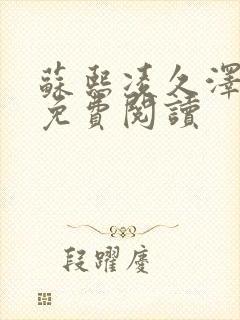 蘇熙凌久澤
免費閱讀
段躍慶